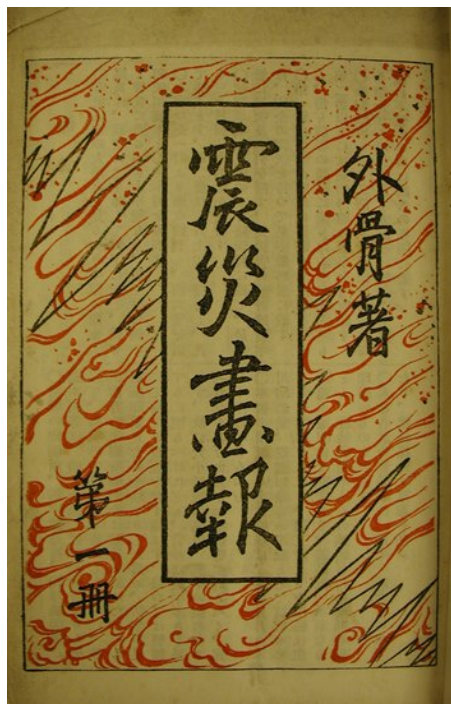 外骨著
震災畫報
第一冊